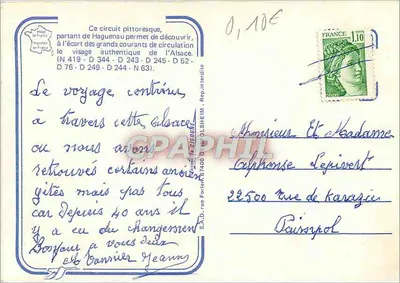 0,10€
Ce circuit pittoresque,
partant de Haguenau permet de découvrir,
à l'écart des grands courants de circulation
le visage authentique de l'Alsace.
(N 419 - D 344 - D 243 - D 245 - D 52 -
D 76 - D 249 - D 244 - N 63).
FRANCE
1,10
Le voyage continue
à travers cette Alsace
ou nous avons
retrouvés certains anciens
gites mais pas tous
car depuis 40 ans il
y a eu du changement
Bonjour a vous deux
Jeanne
Monsieur Et Madame
Alphonse
22500 Rue de
Paimpol
67400
Rep. interdite
PHIL